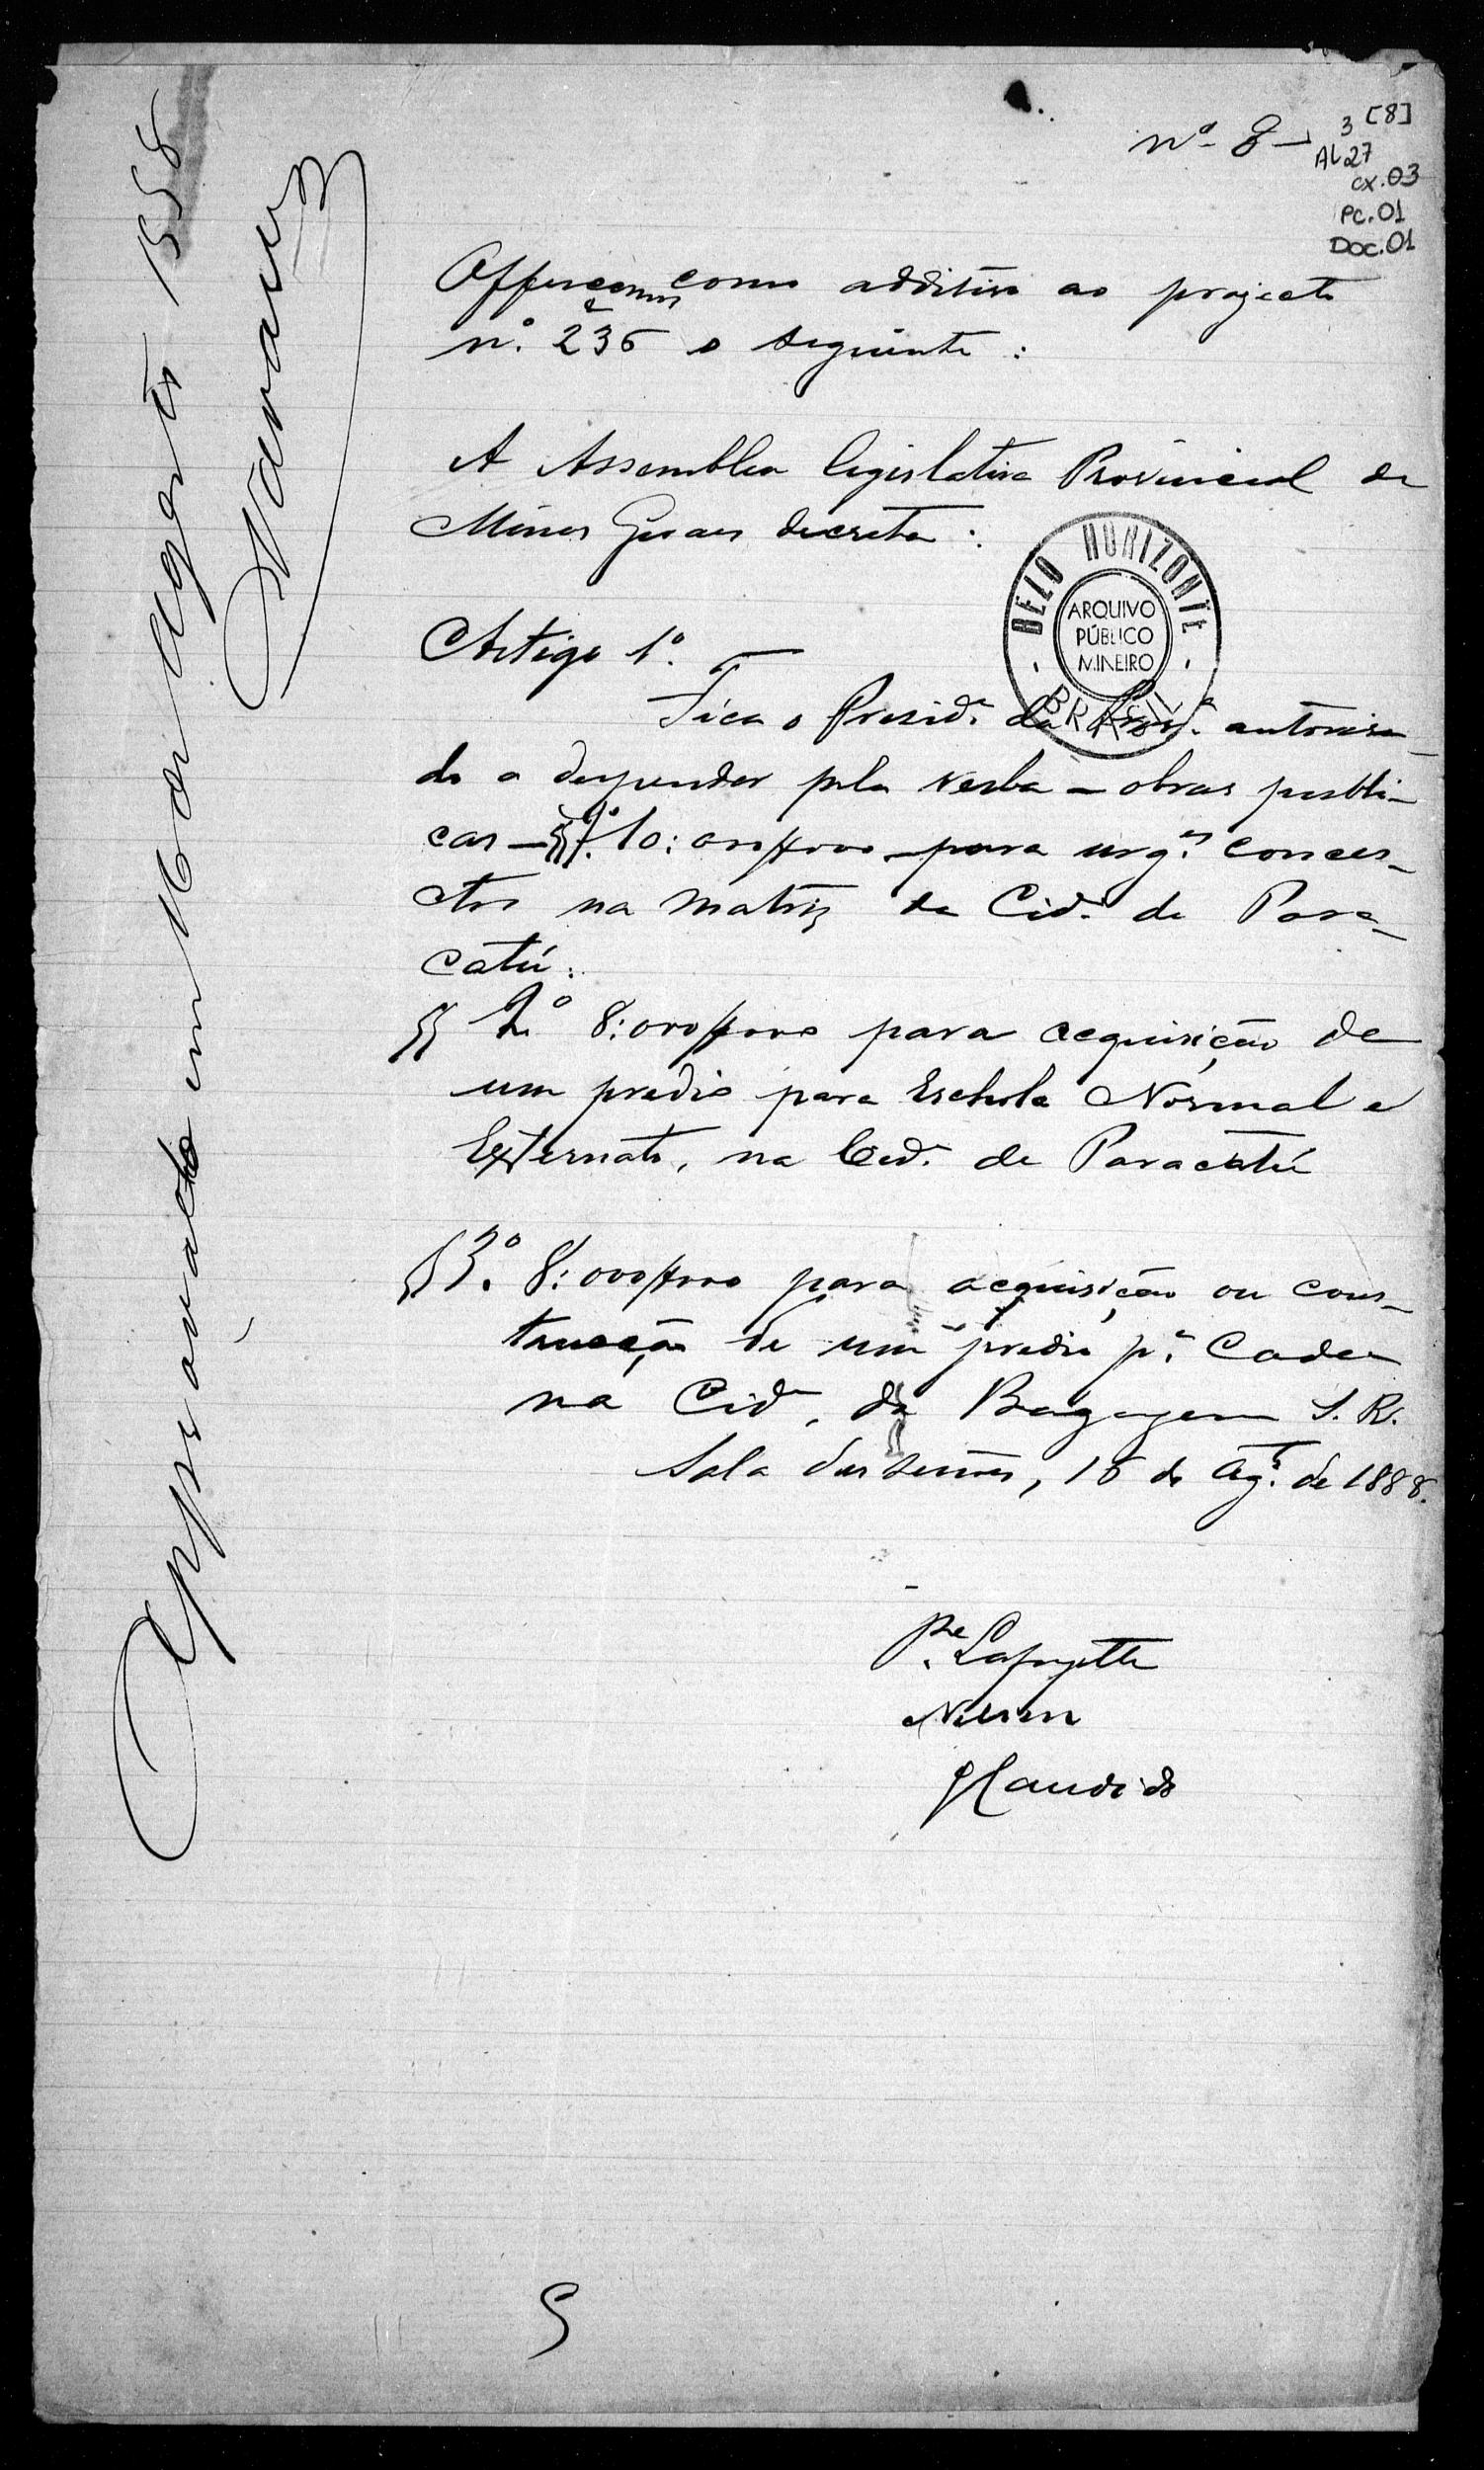 nº 8 —
3 [8]
AL27
cx.03
PC.01
DOC.01
Offerecemos como additivo ao projecto
nº. 236 o seguinte :
A Assemblea legislativa Provincial de
Minas Geraes decreta :
BELO HORIZONTE
ARQUIVO
PÚBLICO
MINEIRO
BRASIL
Artigo 1º.
Fica o Presid.e da Prov.a autorisa-
do a despender pela verba — obras publi-
cas — § 1º. 10:000$000 — para urg.es concer-
tos na matriz da Cid.e de Para-
catú.
§ 2º 8:000$000 para acquisição de
um predio para Eschola Normal e
Externato, na Cid.e de Paracatú
§ 3º. 8:000$000 para acquisição ou cons-
trucção de um predio p.a Cadea
na Cid.e da Bagagem S. R.
Sala das sessões, 16 de Ag.to de 1888.
P.e Lafayette
Nelson
Candido
Approvado em 16 de Agosto 188